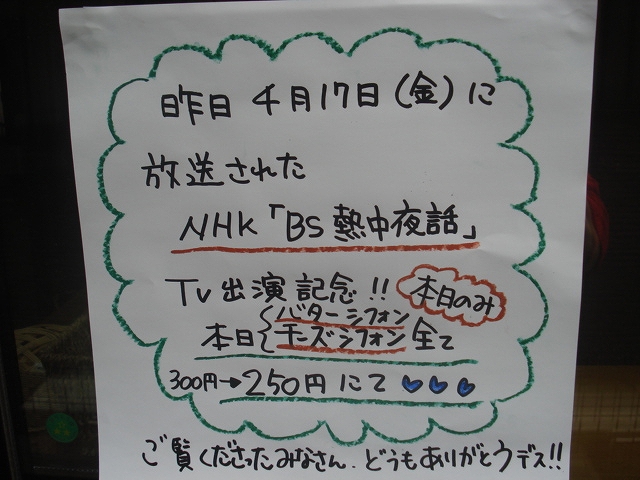 昨日 4月17日(金)に
放送された
NHK「BS熱中夜話」
TV出演記念!! 本日のみ
本日{バターシフォン
チーズシフォン 全て
300円→250円にて
ご覧くださったみなさん、どうもありがとうデス!!